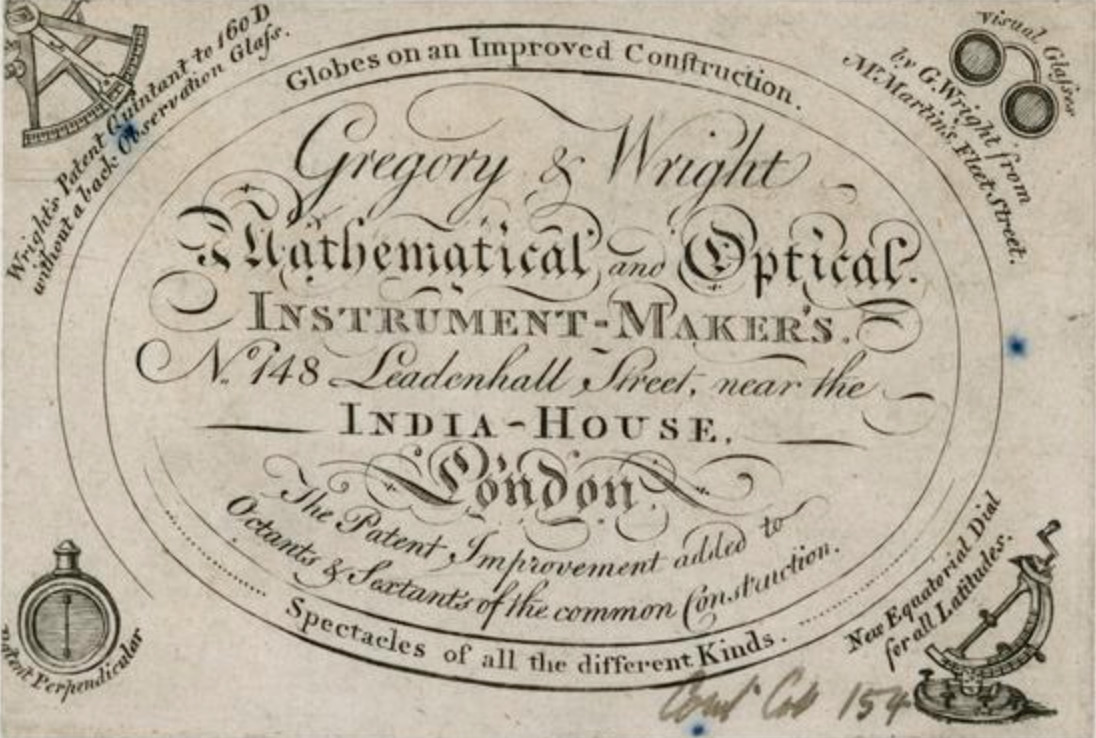 Wright's Patent Quintant to 160 D
without a back Observation Glaſs.
Globes on an Improved Conſtruction.
Visual Glaſses
by G. Wright from
Mr. Martin's Fleet Street.
Gregory & Wright
Mathematical and Optical.
INSTRUMENT-MAKER'S.
No. 148 Leadenhall Street, near the
INDIA-HOUSE,
London.
The Patent Improvement added to
Octants & Sextants of the common Conſtruction.
Spectacles of all the different Kinds.
Patent Perpendicular
New Equatorial Dial
for all Latitudes.
154